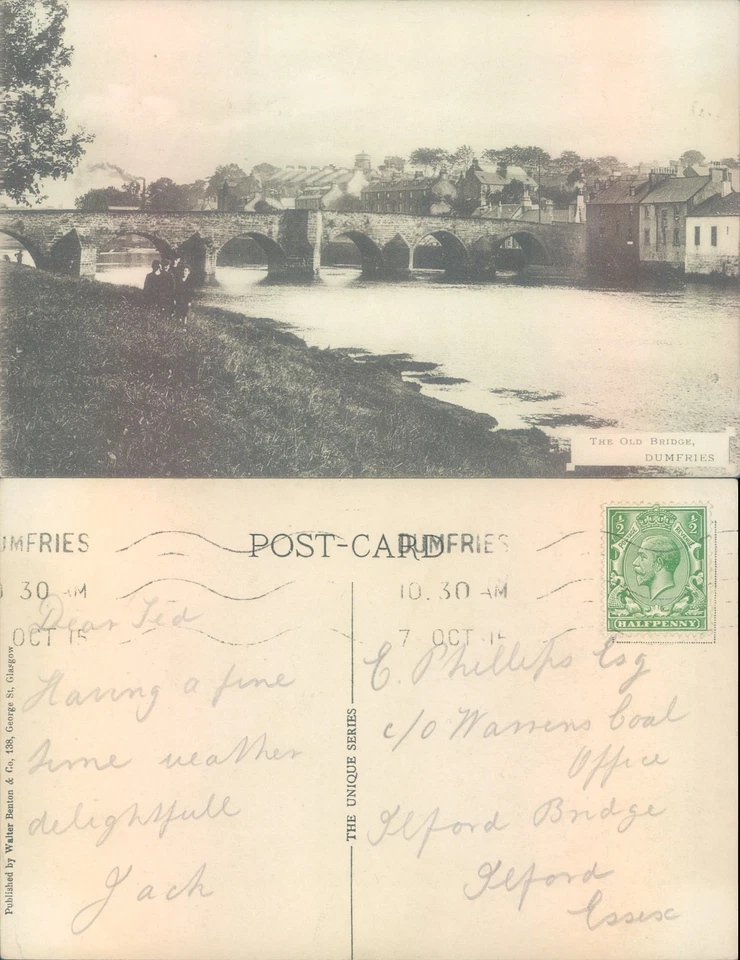 THE OLD BRIDGE,
DUMFRIES
POST-CARD
DUMFRIES
10.30 AM
7 OCT 15
UMFRIES
30 AM
OCT 15
½ ½
POSTAGE REVENUE
HALFPENNY
Dear Ted
Having a fine
time weather
delightfull
Jack
E. Phillips Esq
c/o Warrens Coal
Office
Ilford Bridge
Ilford
Essex
THE UNIQUE SERIES
Published by Walter Benton & Co, 138, George St, Glasgow